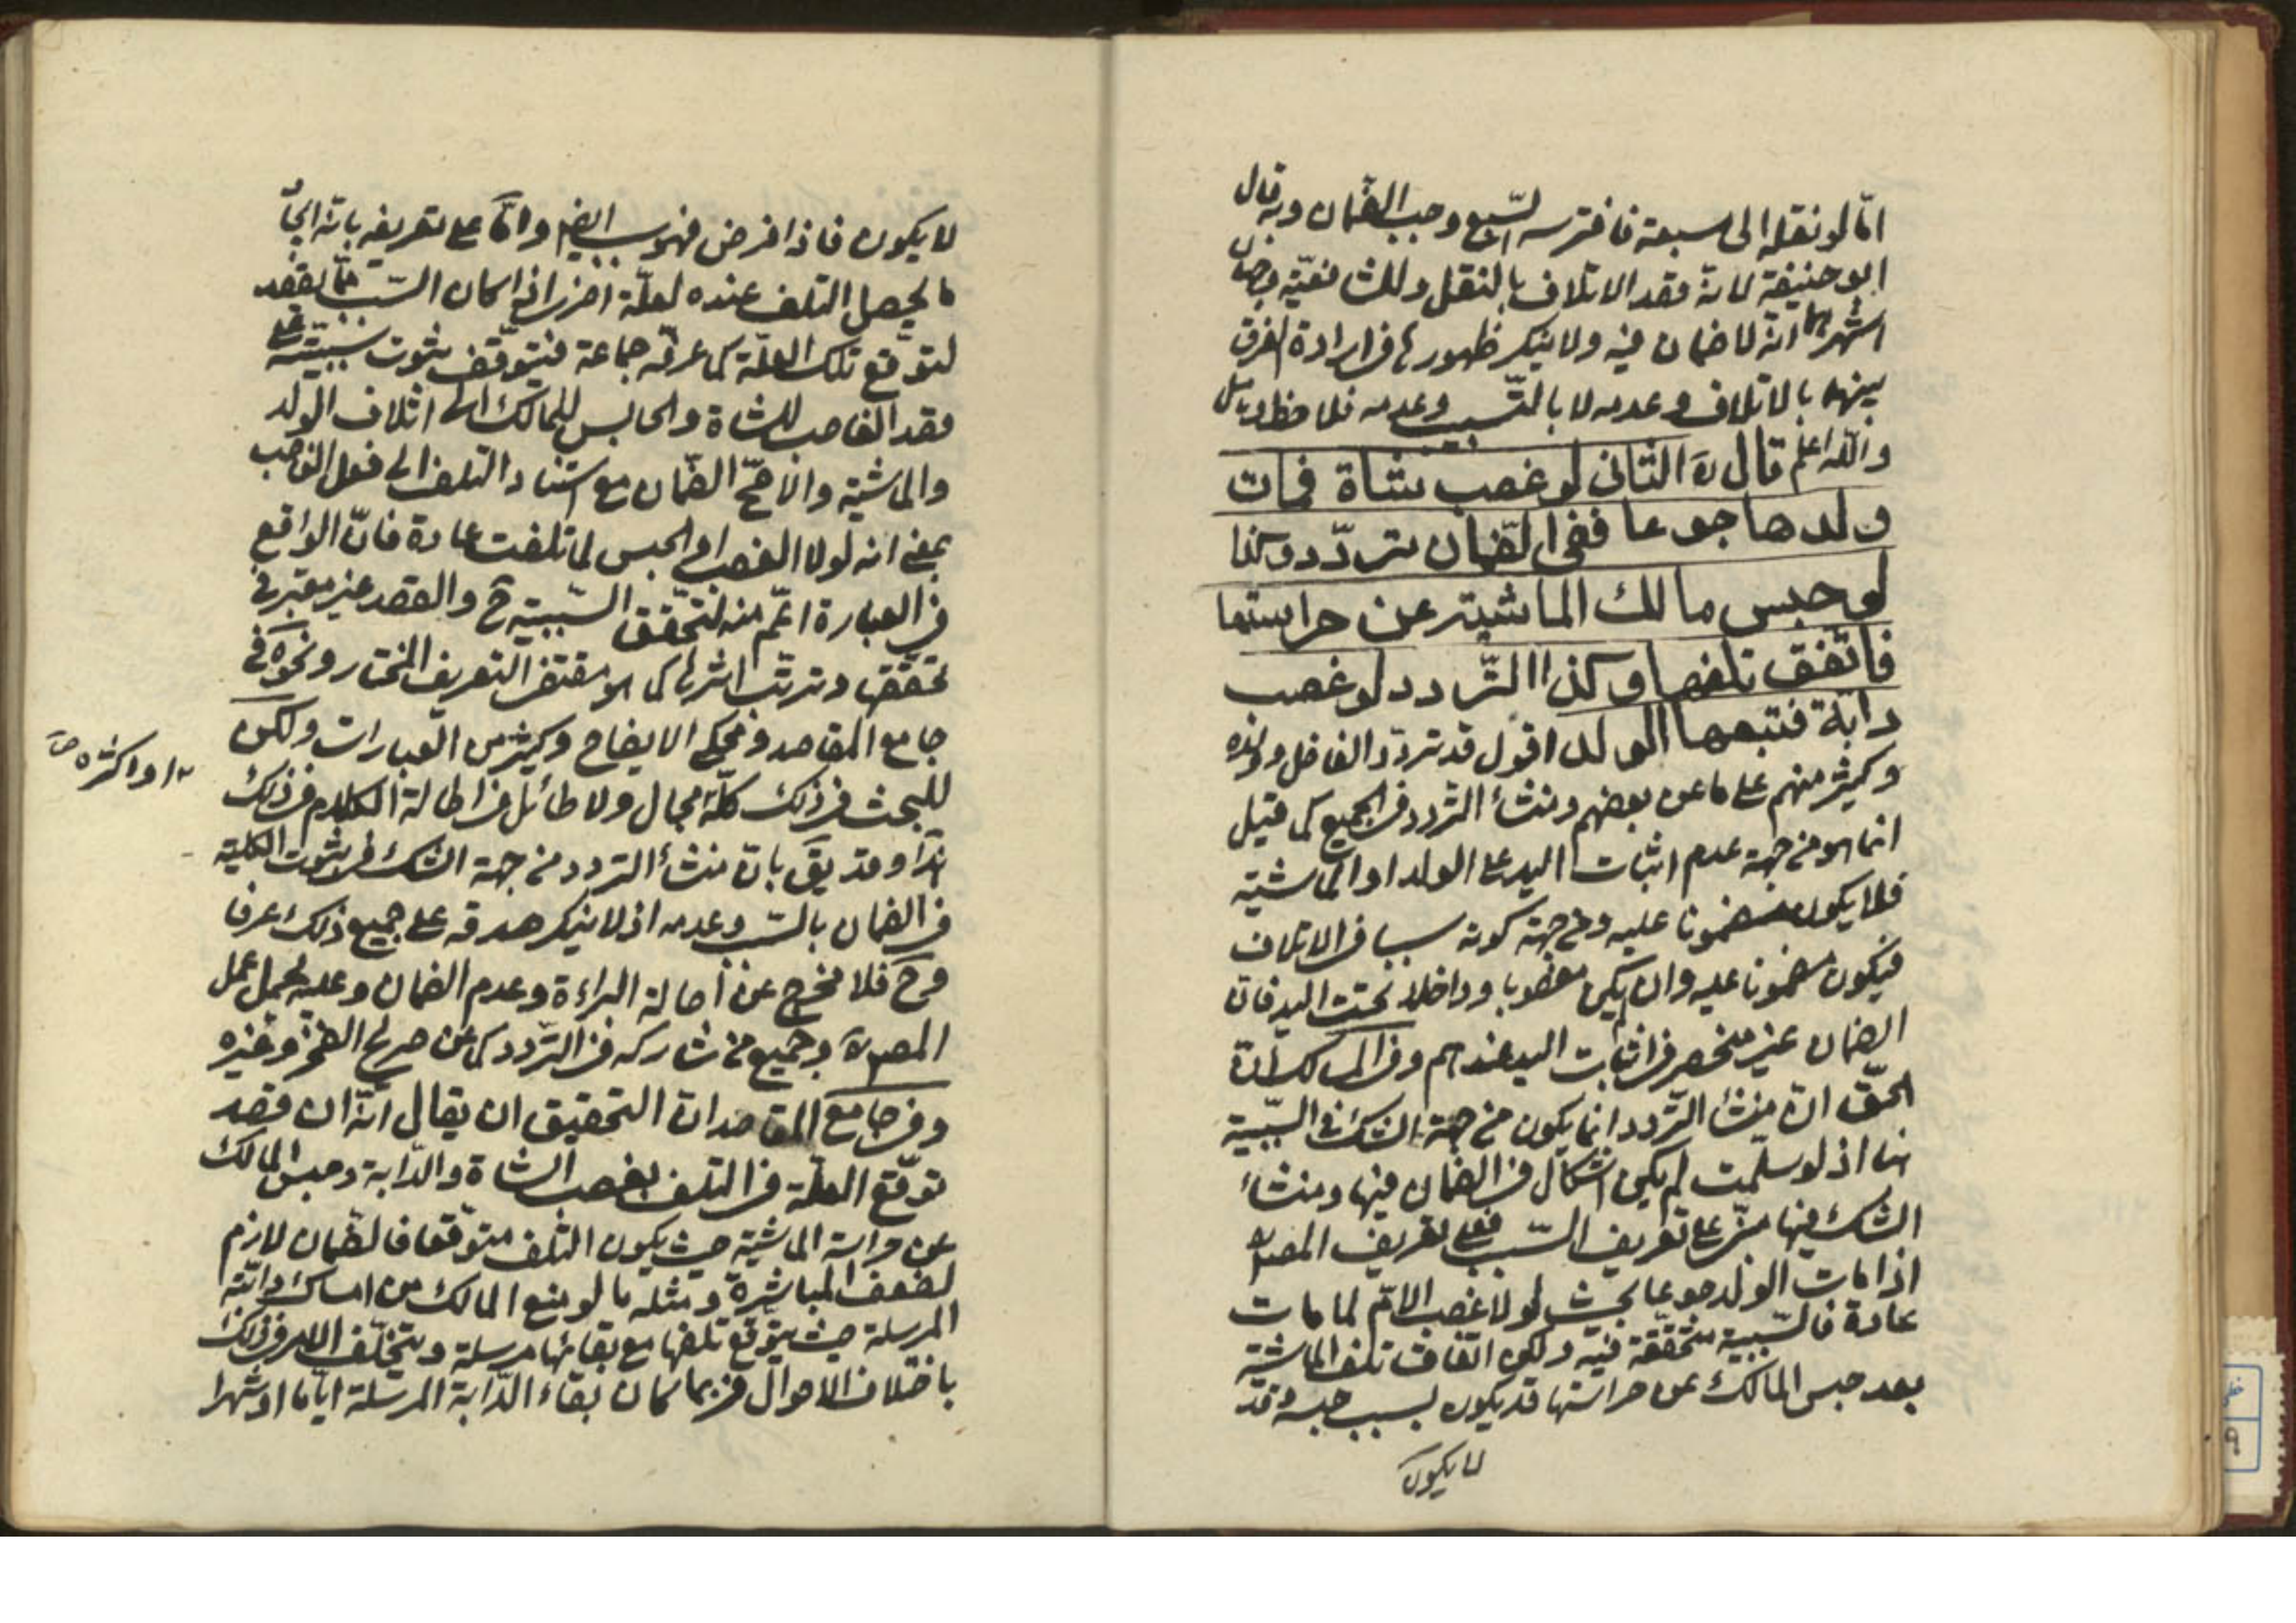 امّا لو نقله الى مسبعة فافترسه السّبع وجب الضّمان وبه قال
ابو حنيفة لانه قصد الاتلاف بالنقل وللشافعيّة وجهان
اشهرهما انه لا ضمان فيه ولا ينكر ظهورها في ارادة الفرق
بينهما بالاتلاف وعدمه لا بالتّسبيب وعدمه فلاحظ وتأمل
والله اعلم قال ره الثاني لو غصب شاة فمات
ولدها جوعا ففي الضّمان تردّد وكذا
لو حبس مالك الماشية عن حراستها
فاتّفق تلفها وكذا التّردد لو غصب
دابّة فتبعها الولد اقول قد تردّد الفاضل وولده
وكثير منهم على ما عن بعضهم ومنشأ التردد في الجميع كما قيل
انما هو من جهة عدم اثبات اليد على الولد او الماشية
فلا يكون مضمونا عليه ومن جهة كونه سببا في الاتلاف
فيكون مضمونا عليه وان لم يكن مغصوبا وداخلا تحت اليد فان
الضمان غير منحصر في اثبات اليد عندهم وفي المسالك انّ
الحقّ انّ منشأ التّردد انما يكون من جهة الشك في السّببية
هنا اذ لو سلّمت لم يكن اشكال في الضمان فيها ومنشأ
الشك فيها مبنيّ على تعريف السّبب فعلى تعريف المصره
اذا مات الولد جوعا بحيث لو لا غصب الام لما مات
عادة فالسّببية متحققة فيه ولكن اتفاق تلف الماشية
بعد حبس المالك عن حراستها قد يكون بسبب حبسه وقد
لا يكون
لا يكون فاذا فرض فهو سبب ايضا وامّا على تعريفه بانّه ايجاد
ما يحصل التلف عنده لعلّة اخرى اذا كان السّبب ممّا يقصد
لتوقّع تلك العلّة كما عرفه جماعة فيتوقّف ثبوت سببيّته على
قصد الغاصب للشاة والحابس للمالك الى اتلاف الولد
والماشية والاصحّ الضّمان مع استناد التلف الى فعل الغاصب
بمعنى انه لولا الغصب او الحبس لما تلفت عادة فانّ الواقع
في العبارة اعمّ منه لتحقّق السّببية ح والقصد غير معتبر في
تحققها وترتّب اثرها كما هو مقتضى التعريف المختار ونحوه في
جامع المقاصد ومحكي الايضاح وكثير من العبارات ولكن
او اكثره صح
للبحث في ذلك كلّه مجال ولا طائل في اطالة الكلام في ذلك
هذا وقد يقَ بانّ منشأ التردد من جهة الشك في ثبوت الكلية
في الضمان بالسّبب وعدمه اذ لا ينكر صدقه على جميع ذلك عرفا
وح فلا مخرج عن أصالة البراءة وعدم الضمان وعليه يحمل عمل
المصره وجميع من شاركه في التّردد كما عن صريح الفخر وغيره
وفي جامع المقاصد انّ التحقيق ان يقال انّه ان قصد
توقّع العلّة في التلف بغصب الشاة والدّابة وحبس المالك
عن حراسة الماشية حيث يكون التلف متوقّعا فالضّمان لازم
لضعف المباشرة ومثله ما لو منع المالك من امساك دابّته
المرسلة حيث يتوقع تلفها مع بقائها مرسلة ويتخلّف الامر في ذلك
باختلاف الاحوال فربما كان بقاء الدّابة المرسلة ايّاما او شهرا